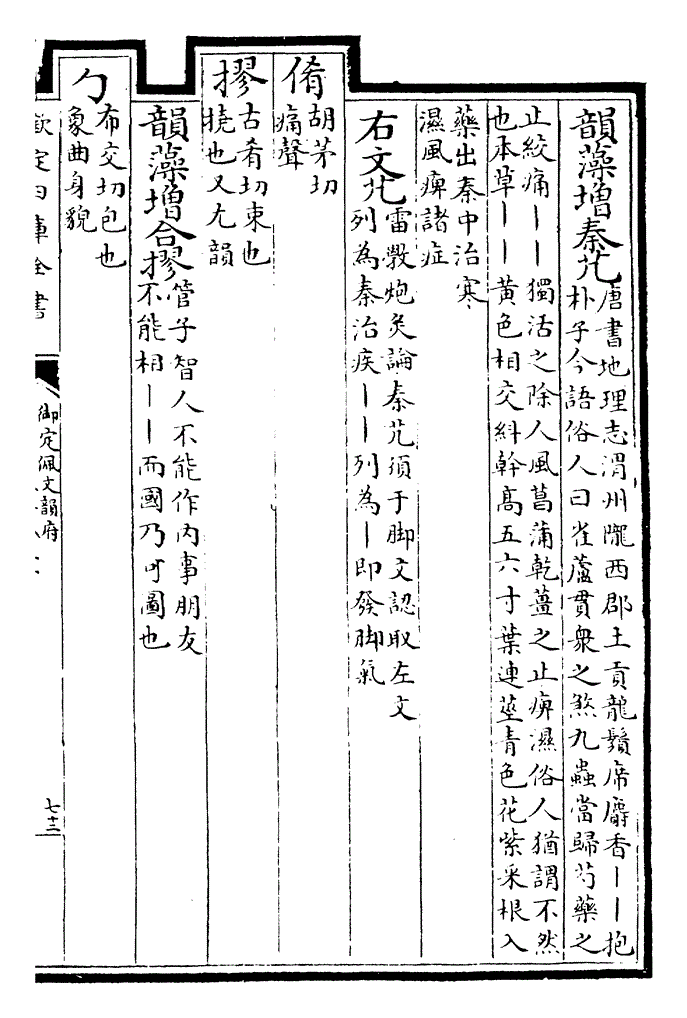 韻藻增秦艽
唐書地理志渭州隴西郡土貢龍鬚席麝香丨丨抱
朴子今語俗人曰雈蘆貫衆之煞九蟲當歸芍藥之
止絞痛丨丨獨活之除人風菖蒲乾薑之止痹濕俗人猶謂不然
也本草丨丨黃色相交糾幹高五六寸葉連莖青色花紫采根入
藥出秦中治寒
濕風痺諸症
右文艽
雷斆炮炙論秦艽須于脚文認取左文
列為秦治疾丨丨列為丨即發脚氣
倄
胡茅切
痛聲
摎
古肴切束也
撓也又尤韻
韻藻增合摎
管子智人不能作内事朋友
不能相丨丨而國乃可圖也
勹
布交切包也
象曲身貌
欽定四庫全書
御定佩文韻府
七十二